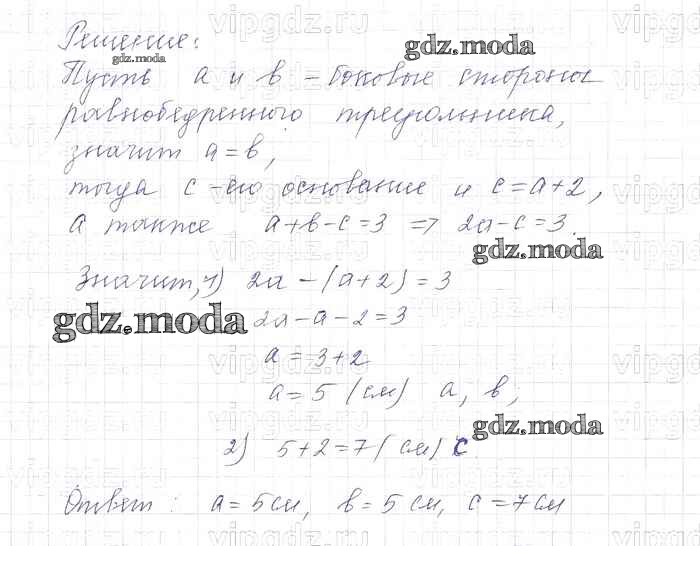 Решение:
gdz.moda
gdz.moda
Пусть а и в – боковые стороны
равнобедренного треугольника,
значит а = в,
тогда с – его основание и с = а + 2,
а также а + в – с = 3 => 2а – с = 3.
gdz.moda
Значит, 1) 2а – (а + 2) = 3
gdz.moda
2а – а – 2 = 3
а = 3 + 2
а = 5 (см) а, в;
gdz.moda
2) 5 + 2 = 7 (см) с
Ответ: а = 5 см, в = 5 см, с = 7 см